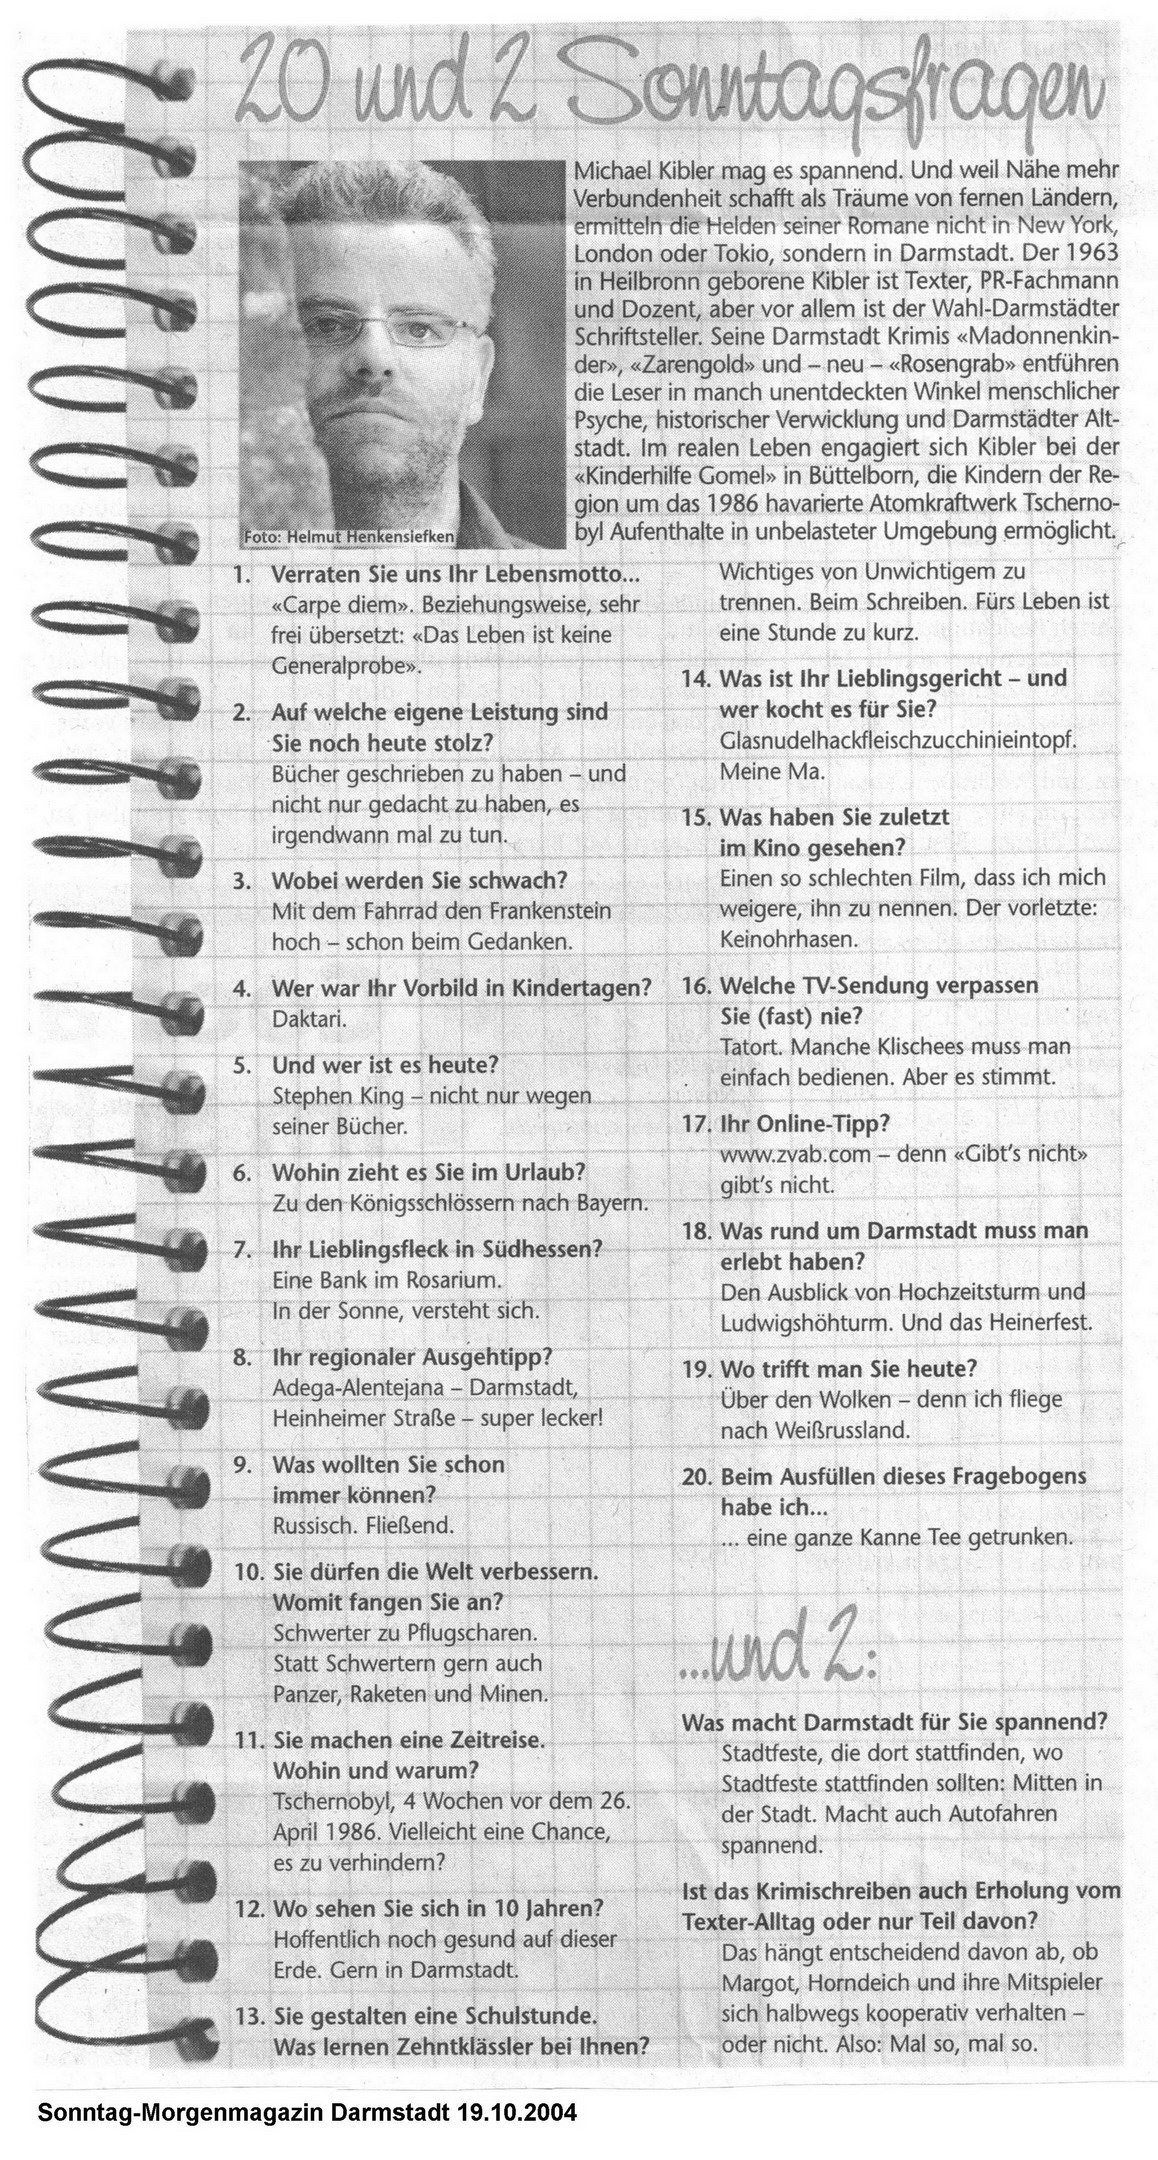 20 und 2 Sonntagsfragen
Michael Kibler mag es spannend. Und weil Nähe mehr
Verbundenheit schafft als Träume von fernen Ländern,
ermitteln die Helden seiner Romane nicht in New York,
London oder Tokio, sondern in Darmstadt. Der 1963
in Heilbronn geborene Kibler ist Texter, PR-Fachmann
und Dozent, aber vor allem ist der Wahl-Darmstädter
Schriftsteller. Seine Darmstadt Krimis «Madonnenkin-
der», «Zarengold» und – neu – «Rosengrab» entführen
die Leser in manch unentdeckten Winkel menschlicher
Psyche, historischer Verwicklung und Darmstädter Alt-
stadt. Im realen Leben engagiert sich Kibler bei der
«Kinderhilfe Gomel» in Büttelborn, die Kindern der Re-
gion um das 1986 havarierte Atomkraftwerk Tscherno-
byl Aufenthalte in unbelasteter Umgebung ermöglicht.
Foto: Helmut Henkensiefken
1. Verraten Sie uns Ihr Lebensmotto...
«Carpe diem». Beziehungsweise, sehr
frei übersetzt: «Das Leben ist keine
Generalprobe».
2. Auf welche eigene Leistung sind
Sie noch heute stolz?
Bücher geschrieben zu haben – und
nicht nur gedacht zu haben, es
irgendwann mal zu tun.
3. Wobei werden Sie schwach?
Mit dem Fahrrad den Frankenstein
hoch – schon beim Gedanken.
4. Wer war Ihr Vorbild in Kindertagen?
Daktari.
5. Und wer ist es heute?
Stephen King – nicht nur wegen
seiner Bücher.
6. Wohin zieht es Sie im Urlaub?
Zu den Königsschlössern nach Bayern.
7. Ihr Lieblingsfleck in Südhessen?
Eine Bank im Rosarium.
In der Sonne, versteht sich.
8. Ihr regionaler Ausgehtipp?
Adega-Alentejana – Darmstadt,
Heinheimer Straße – super lecker!
9. Was wollten Sie schon
immer können?
Russisch. Fließend.
10. Sie dürfen die Welt verbessern.
Womit fangen Sie an?
Schwerter zu Pflugscharen.
Statt Schwertern gern auch
Panzer, Raketen und Minen.
11. Sie machen eine Zeitreise.
Wohin und warum?
Tschernobyl, 4 Wochen vor dem 26.
April 1986. Vielleicht eine Chance,
es zu verhindern?
12. Wo sehen Sie sich in 10 Jahren?
Hoffentlich noch gesund auf dieser
Erde. Gern in Darmstadt.
13. Sie gestalten eine Schulstunde.
Was lernen Zehntklässler bei Ihnen?
Wichtiges von Unwichtigem zu
trennen. Beim Schreiben. Fürs Leben ist
eine Stunde zu kurz.
14. Was ist Ihr Lieblingsgericht – und
wer kocht es für Sie?
Glasnudelhackfleischzucchinieintopf.
Meine Ma.
15. Was haben Sie zuletzt
im Kino gesehen?
Einen so schlechten Film, dass ich mich
weigere, ihn zu nennen. Der vorletzte:
Keinohrhasen.
16. Welche TV-Sendung verpassen
Sie (fast) nie?
Tatort. Manche Klischees muss man
einfach bedienen. Aber es stimmt.
17. Ihr Online-Tipp?
www.zvab.com – denn «Gibt's nicht»
gibt's nicht.
18. Was rund um Darmstadt muss man
erlebt haben?
Den Ausblick von Hochzeitsturm und
Ludwigshöhturm. Und das Heinerfest.
19. Wo trifft man Sie heute?
Über den Wolken – denn ich fliege
nach Weißrussland.
20. Beim Ausfüllen dieses Fragebogens
habe ich...
... eine ganze Kanne Tee getrunken.
...und 2:
Was macht Darmstadt für Sie spannend?
Stadtfeste, die dort stattfinden, wo
Stadtfeste stattfinden sollten: Mitten in
der Stadt. Macht auch Autofahren
spannend.
Ist das Krimischreiben auch Erholung vom
Texter-Alltag oder nur Teil davon?
Das hängt entscheidend davon ab, ob
Margot, Horndeich und ihre Mitspieler
sich halbwegs kooperativ verhalten –
oder nicht. Also: Mal so, mal so.
Sonntag-Morgenmagazin Darmstadt 19.10.2004